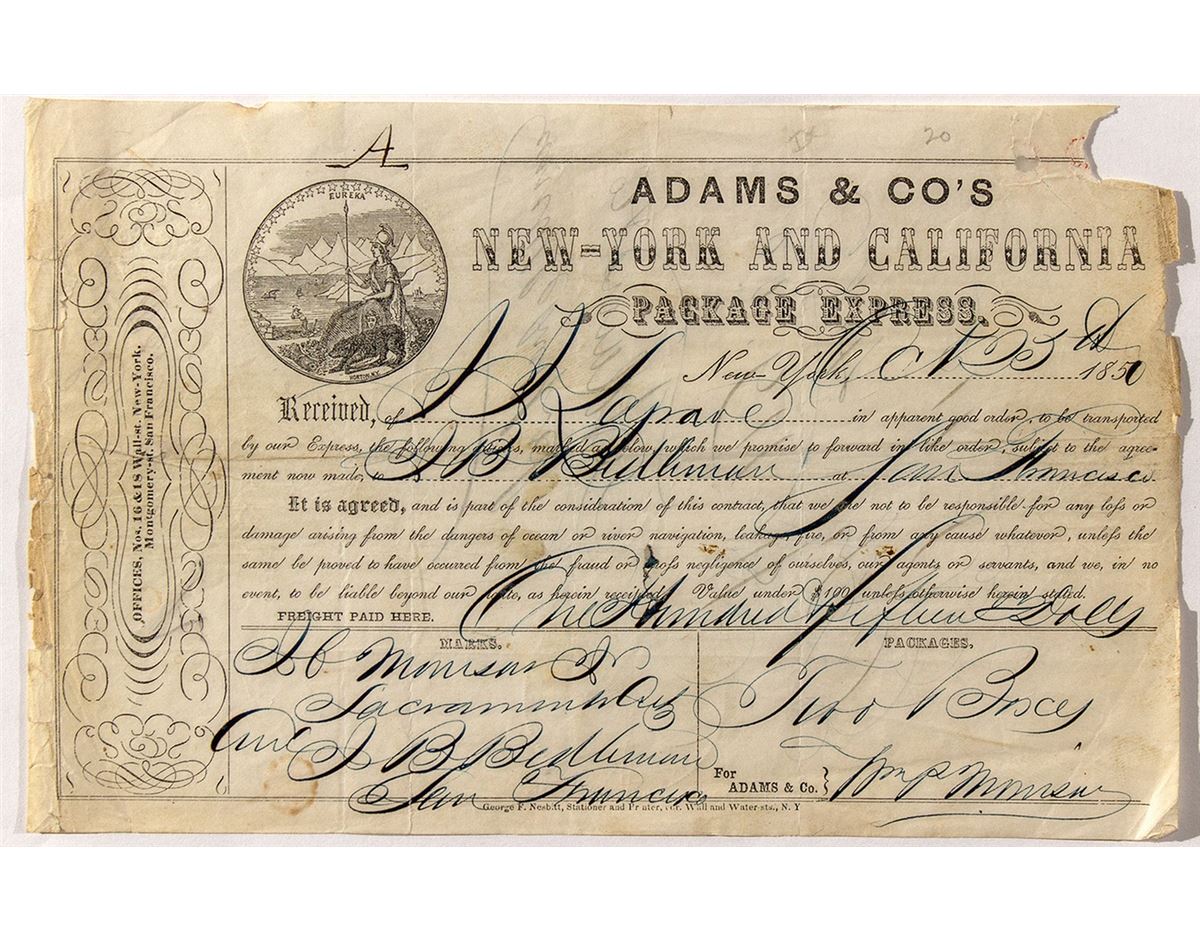 A
20
EUREKA
HORTON. N.Y.
ADAMS & CO'S
NEW-YORK AND CALIFORNIA
PACKAGE EXPRESS.
New-York, 1850
Received, of in apparent good order, to be transported
by our Express, the following articles, marked as below, which we promise to forward in like order, subject to the agree-
ment now made, to J B Bidleman at San Francisco
It is agreed, and is part of the consideration of this contract, that we are not to be responsible for any loss or
damage arising from the dangers of ocean or river navigation, leakage, fire, or from any cause whatever, unless the
same be proved to have occurred from the fraud or gross negligence of ourselves, our agents or servants, and we, in no
event, to be liable beyond our route, as herein receipted. Value under $100 unless otherwise herein stated.
FREIGHT PAID HERE. One Hundred Fifteen Dolls
MARKS. PACKAGES.
Morrison Jr
Sacramento City
Care J B Bidleman
San Francisco
Two Boxes
For
ADAMS & Co. } Wm P Morrison
George F. Nesbitt, Stationer and Printer, cor. Wall and Water-sts., N. Y
OFFICES, Nos. 16 & 18 Wall-st. New-York.
Montgomery-st. San Francisco.